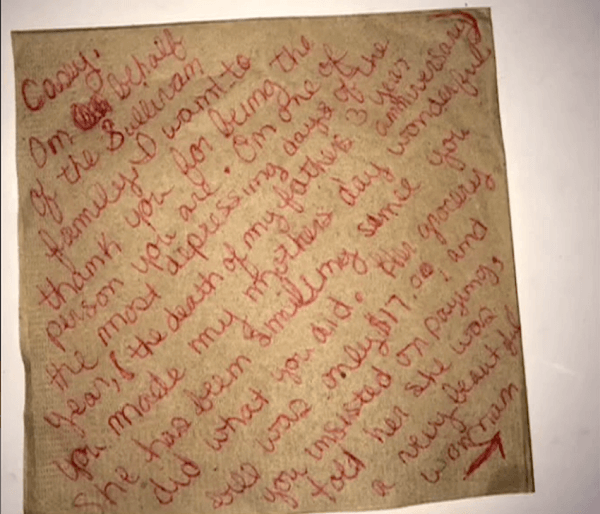 Casey,
On behalf
of the Sullivan
family, I want to
thank you for being the
person you are. On one of
the most depressing days of the
year, (the death of my father's 3 year anniversary)
you made my mothers day wonderful
She has been smiling since you
did what you did. Her grocery
bill was only $17.00, and
you insisted on paying,
told her she was
a very beautiful
woman